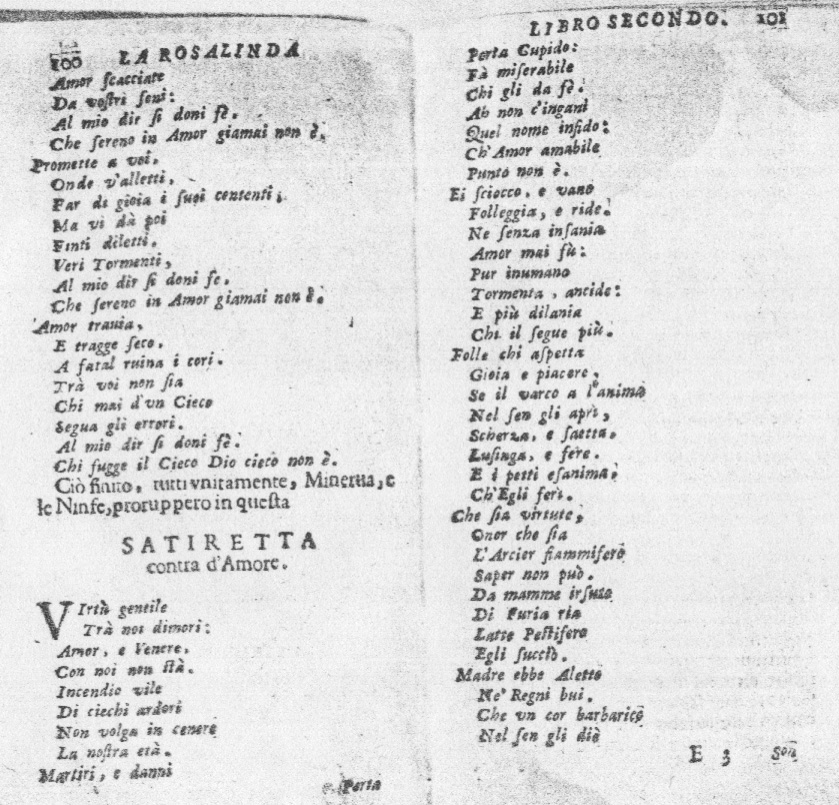 100 LA ROSALINDA
Amor ſcacciate
Da voſtri ſeni:
Al mio dir ſi doni fè.
Che ſereno in Amor giamai non è.
Promette a voi,
Onde v'alletti,
Far di gioia i ſuoi contenti;
Ma vi dà poi
Finti diletti,
Veri Tormenti,
Al mio dir ſi doni fe,
Che ſereno in Amor giamai non è.
Amor trauia,
E tragge ſeco,
A fatal ruina i cori.
Trà voi non ſia
Chi mai d'vn Cieco
Segua gli errori.
Al mio dir ſi doni fè.
Chi fugge il Cieco Dio cieco non è.
Ciò finito, tutti vnitamente, Minerua, e
le Ninfe, proruppero in queſta
SATIRETTA
contra d'Amore.
VIrtù gentile
Trà noi dimori:
Amor, e Venere,
Con noi non ſtà.
Incendio vile
Di ciechi ardori
Non volga in cenere
La noſtra età.
Martiri, e danni
Porta
LIBRO SECONDO. 101
Porta Cupido:
Fà miſerabile
Chi gli da fè.
Ah non c'ingani
Quel nome infido:
Ch'Amor amabile
Punto non è.
Ei ſciocco, e vano
Folleggia, e ride.
Ne ſenza inſania
Amor mai fù:
Pur inumano
Tormenta, ancide:
E più dilania
Chi il ſegue più.
Folle chi aſpetta
Gioia e piacere,
Se il varco a l'anima
Nel ſen gli aprì,
Scherza, e ſaetta,
Luſinga, e fere.
E i petti eſanima,
Ch'Egli ferì.
Che ſia virtute,
Onor che ſia
L'Arcier fiammifero
Saper non può.
Da mamme irſute
Di Furia ria
Latte Peſtifero
Egli ſucciò.
Madre ebbe Aletto
Ne' Regni bui.
Che vn cor barbarico
Nel ſen gli diè
E 3 Son